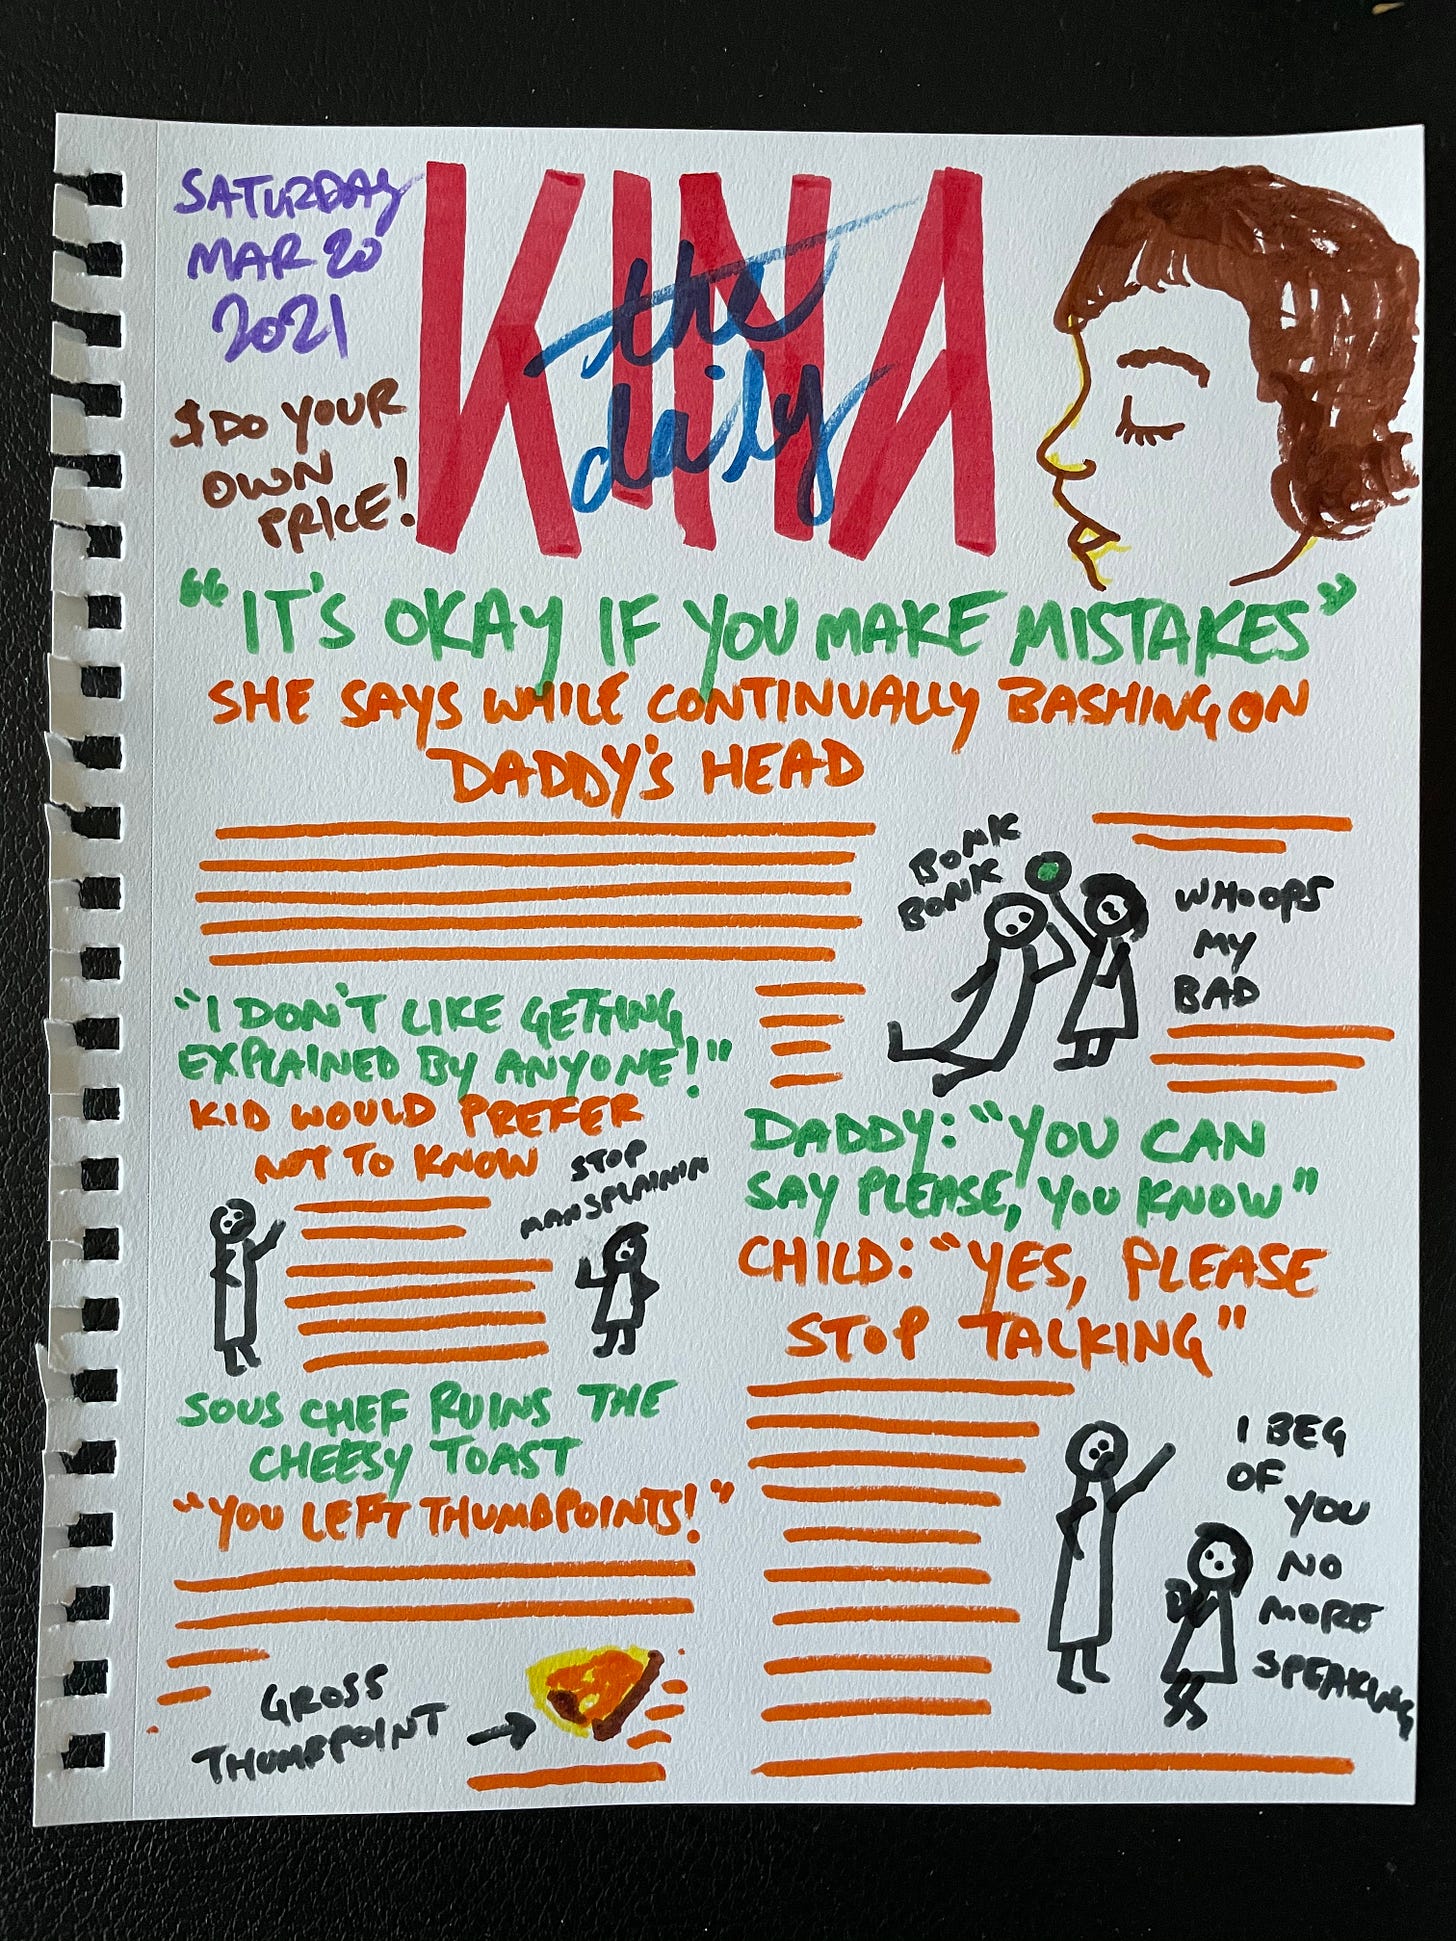 SATURDAY
MAR 20
2021
$ DO YOUR
OWN
PRICE!
the
daily
KINA
"IT'S OKAY IF YOU MAKE MISTAKES"
SHE SAYS WHILE CONTINUALLY BASHING ON
DADDY'S HEAD
BONK
BONK
WHOOPS
MY
BAD
"I DON'T LIKE GETTING
EXPLAINED BY ANYONE!"
KID WOULD PREFER
NOT TO KNOW
STOP
MANSPLAININ
SOUS CHEF RUINS THE
CHEESY TOAST
"YOU LEFT THUMBPOINTS!"
GROSS
THUMBPOINT
DADDY: "YOU CAN
SAY PLEASE, YOU KNOW"
CHILD: "YES, PLEASE
STOP TALKING"
I BEG
OF YOU
NO
MORE
SPEAKING